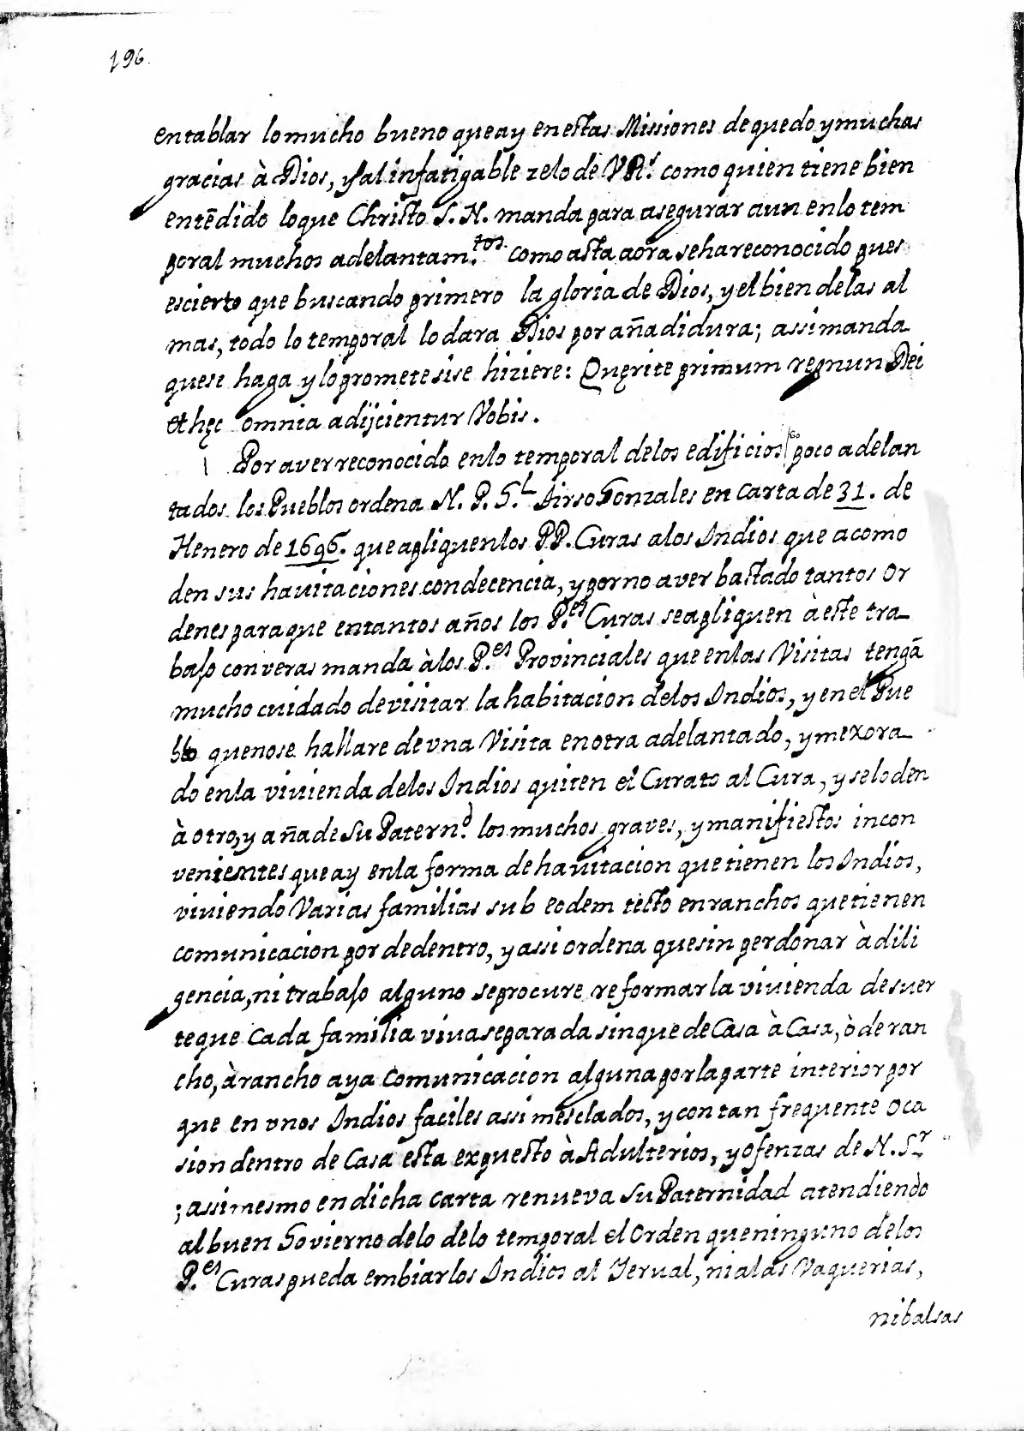 196.
entablar lo mucho bueno que ay en estas Missiones de que do y muchas
gracias à Dios, y al infatigable zelo de VRˢ. como quien tiene bien
entẽdido lo que Christo S. N. manda para asegurar aun en lo tem
poral muchos adelantam.ᵗᵒˢ como asta aora se ha reconocido pues
es cierto que buscando primero la gloria de Dios, y el bien de las al
mas, todo lo temporal lo dara Dios por añadidura; assi manda
que se haga y lo promete si se hiziere: Quęrite primum regnun Dei
et hęc omnia adijcientur Vobis.
Por aver reconocido en lo temporal de los edificios poco adelan
tados los Pueblos ordena N. P. G.ˡ Tirso Gonzales en carta de 31. de
Henero de 1696. que apliquen los PP. Curas a los Indios que acomo
den sus hauitaciones con decencia, y por no aver bastado tantos or
denes para que en tantos años los P.ᵉˢ Curas se apliquen à este tra_
bajo con veras manda à los P.ᵉˢ Provinciales que en las Visitas tengã
mucho cuidado de visitar la habitacion de los Indios, y en el Pue
blo que no se hallare de vna Visita en otra adelantado, y mexora_
do en la viuienda de los Indios quiten el Curato al Cura, y se lo den
à otro, y añade su Patern.ᵈ los muchos graves, y manifiestos incon
venientes que ay en la forma de hauitacion que tienen los Indios,
viviendo Varias familias sub eodem tecto en ranchos que tienen
comunicacion por de dentro, y assi ordena que sin perdonar à dili
gencia, ni trabajo alguno se procure reformar la viuienda de suer
te que cada familia viva separada sin que de Casa à Casa, ò de ran
cho, à rancho aya Comunicacion alguna por la parte interior por
que en vnos Indios faciles assi mesclados, y con tan frequente oca
sion dentro de Casa esta expuesto à Adulterios, y ofenzas de N. S.ʳ
; assi mesmo en dicha carta renueva su Paternidad atendiendo
al buen Govierno de lo de lo temporal el Orden que ninguno de los
P.ᵉˢ Curas pueda embiar los Indios al Yerual, ni a las Vaquerias,
ni balsas